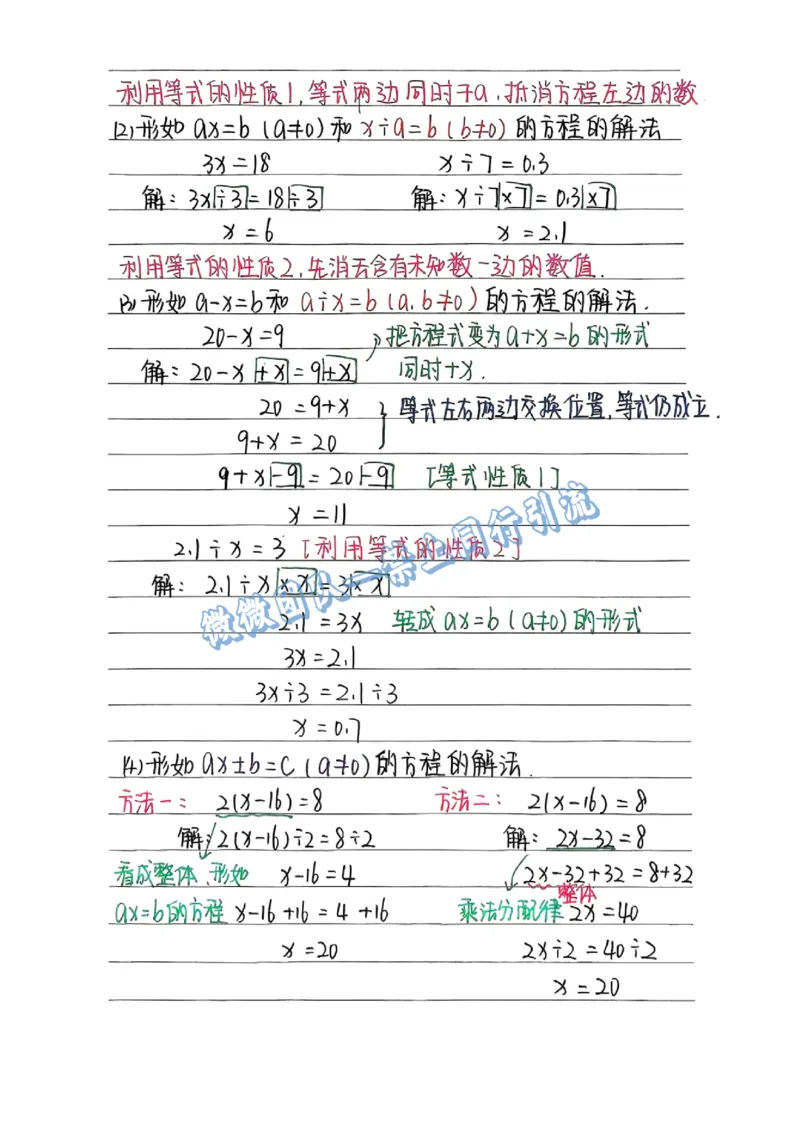 利用等式的性质1,等式两边同时干a,抵消方程左边的数
(2)形如 ax=b (a≠0)和 x÷a=b (b≠0)的方程的解法
3x=18 x÷7=0.3
解: 3x÷3=18÷3 解: x÷7×7=0.3×7
x=6 x=2.1
利用等式的性质2,先消去含有未知数一边的数值.
(3)形如 a-x=b和 a÷x=b (a.b≠0)的方程的解法.
20-x=9 把方程式变为a+x=b的形式
解: 20-x+x=9+x 同时+x.
20=9+x }等式左右两边交换位置,等式仍成立.
9+x=20
9+x-9=20-9 [等式性质1]
x=11
2.1÷x=3 [利用等式的性质2]
解: 2.1÷x×x=3×x
2.1=3x 转成ax=b (a≠0)的形式
3x=2.1
3x÷3=2.1÷3
x=0.7
(4)形如ax±b=c (a≠0)的方程的解法.
方法一: 2(x-16)=8 方法二: 2(x-16)=8
解: 2(x-16)÷2=8÷2 解: 2x-32=8
看成整体、形如 x-16=4 2x-32+32=8+32
整体
ax=b的方程 x-16+16=4+16 乘法分配律 2x=40
x=20 2x÷2=40÷2
x=20
微微团队一条业同行引流